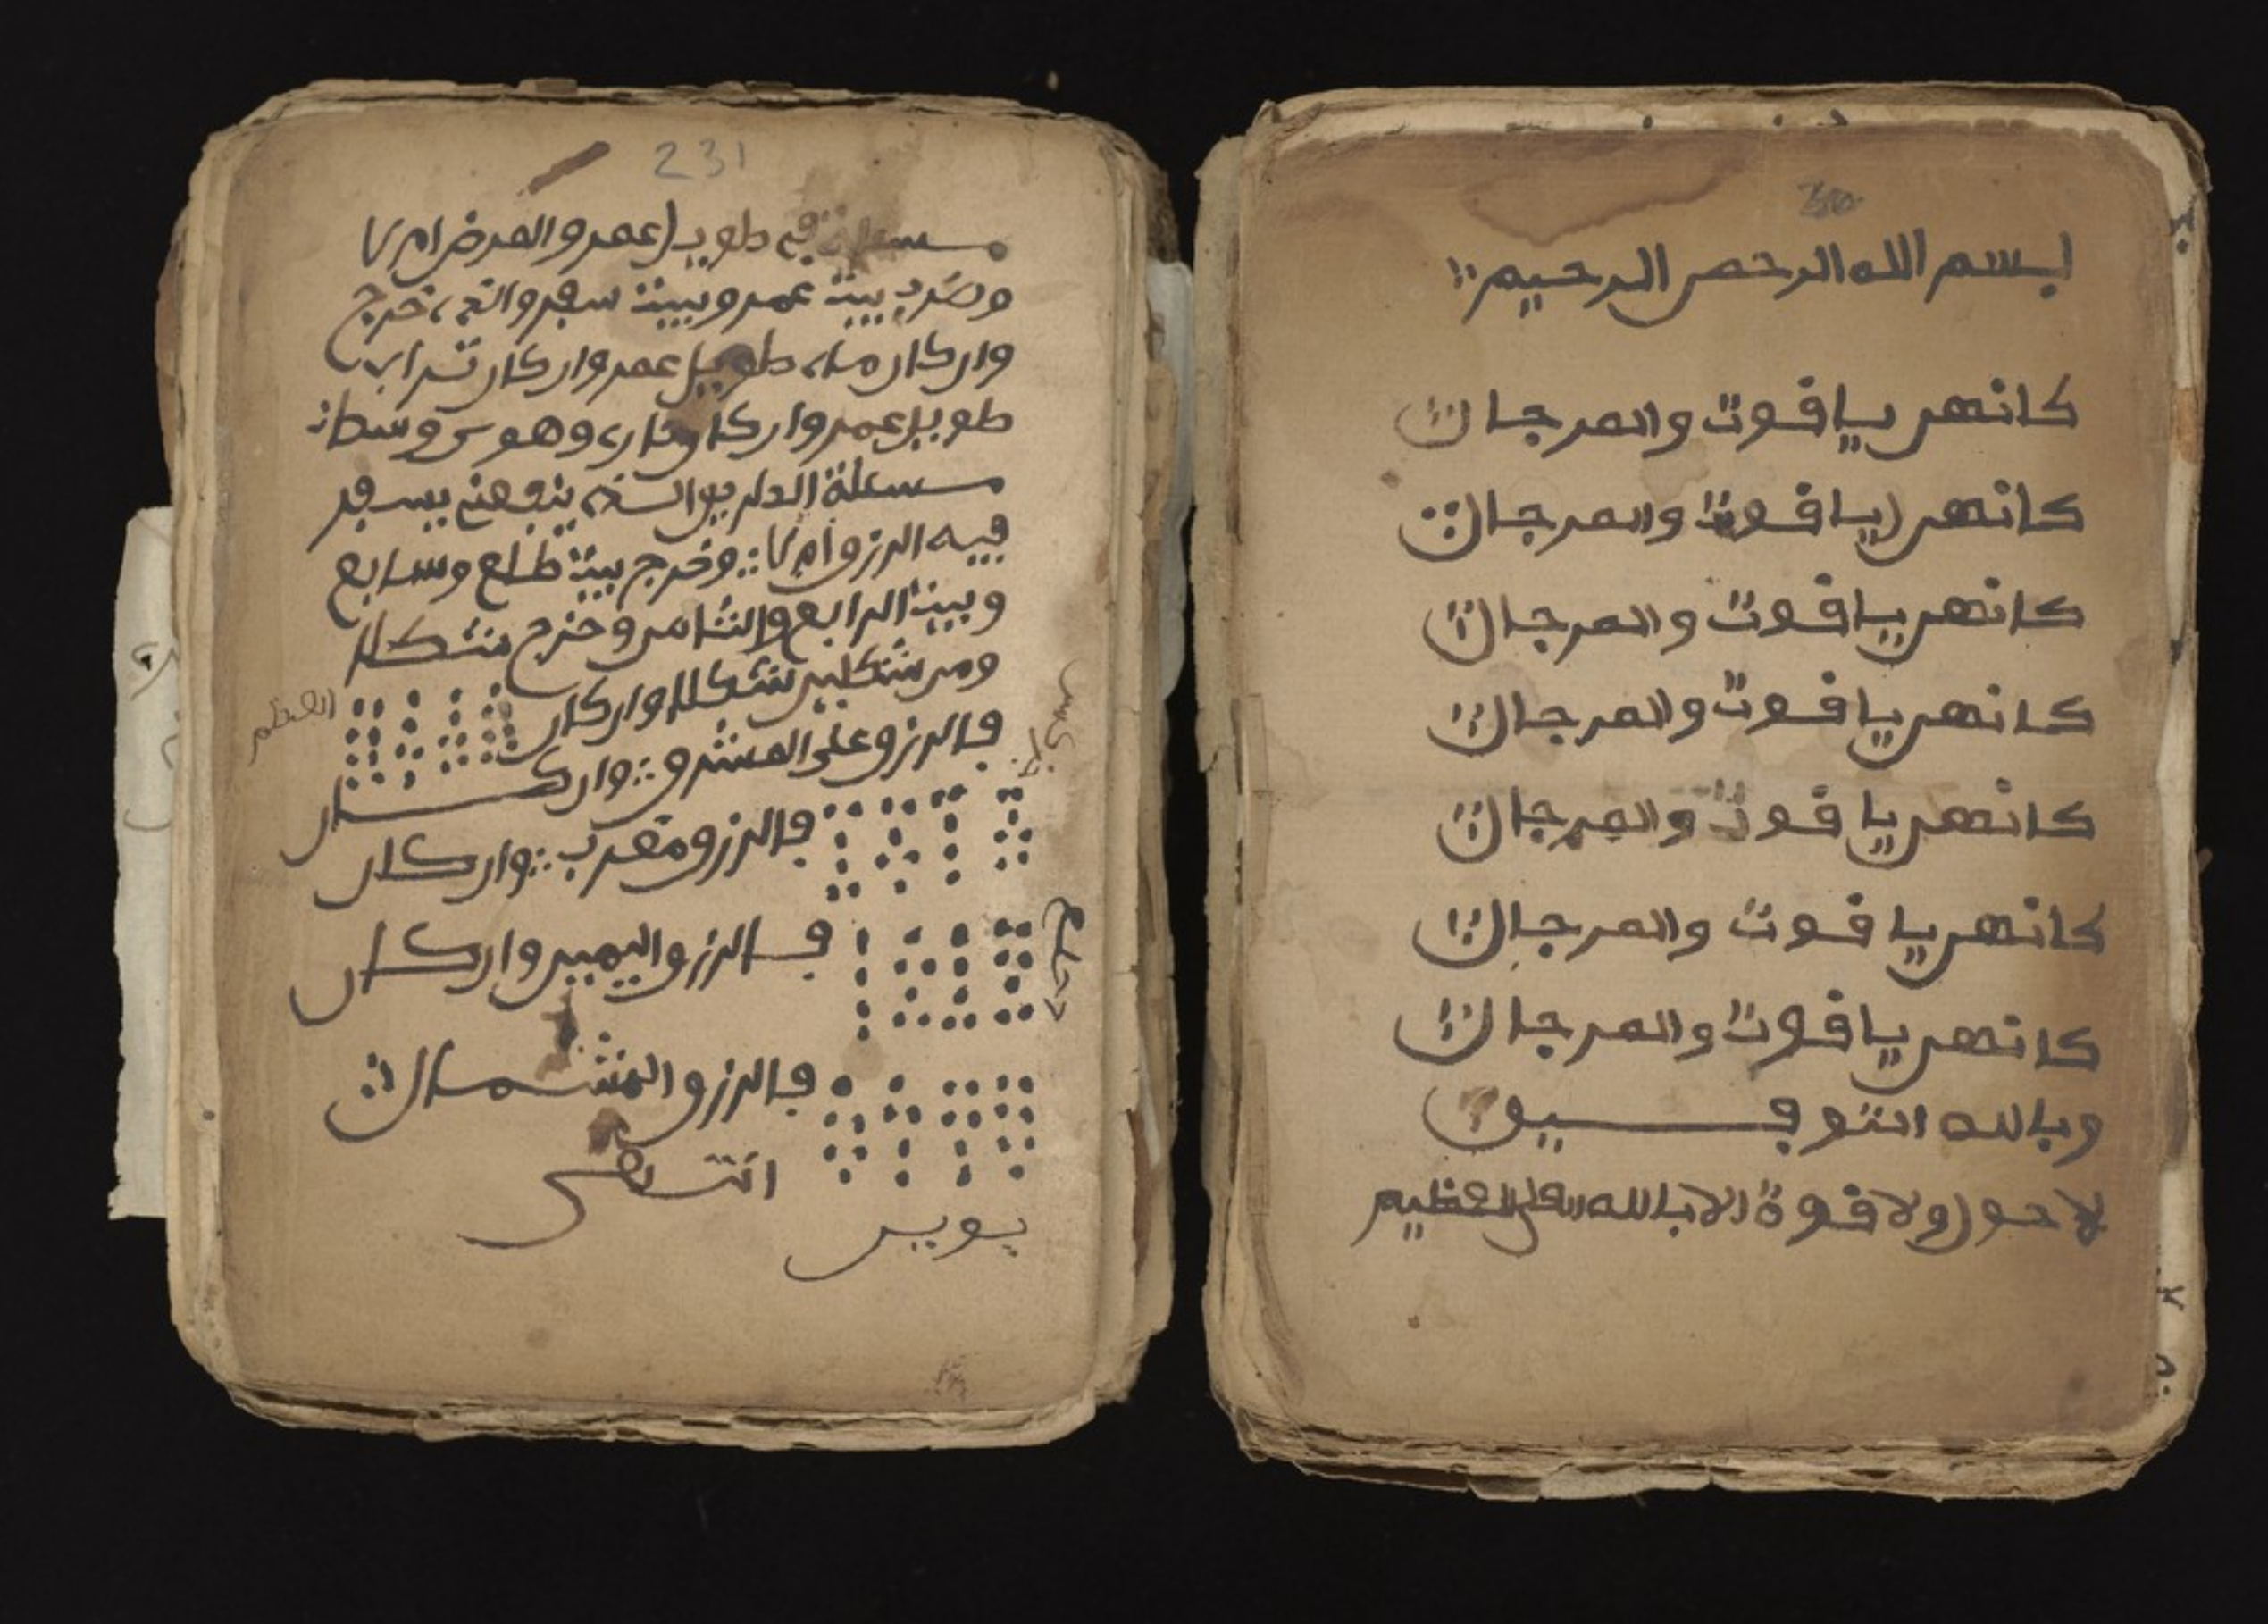 بسم الله الرحمن الرحيم
كانهن ياقوت والمرجان
كانهن ياقوت والمرجان
كانهن ياقوت والمرجان
كانهن ياقوت والمرجان
كانهن ياقوت والمرجان
كانهن ياقوت والمرجان
كانهن ياقوت والمرجان
وبالله التوفيق
لا حول ولا قوة الا بالله العلي العظيم
231
مسئلة في طويل عمر والمرض ام لا
وضرب بيت عمر وبيت سفر خرج
وان كان ماء طويل عمر وان كان تراب
طويل عمر وان كان نار وهو وسط
مسئلة
فيه الرزق ام لا وخرج بيت طلع وسابع
وبيت الرابع والثامن وخرج شكلا
ومن شكلين شكلا وان كان
العظم
فالرزق على المشرق وان كان
فالرزق مغرب وان كان
فالرزق اليمين وان كان
فالرزق الشمال
انتهى